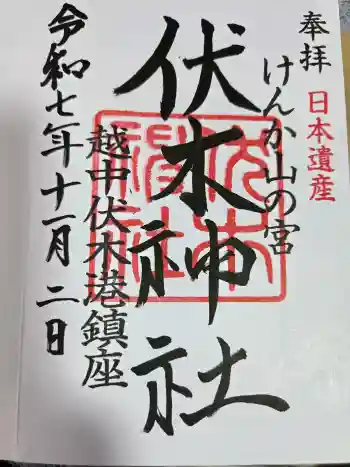 奉拝
日本遺産
けんか山の宮
伏木神社
越中伏木港鎮座
令和七年十一月二日
伏木
神社